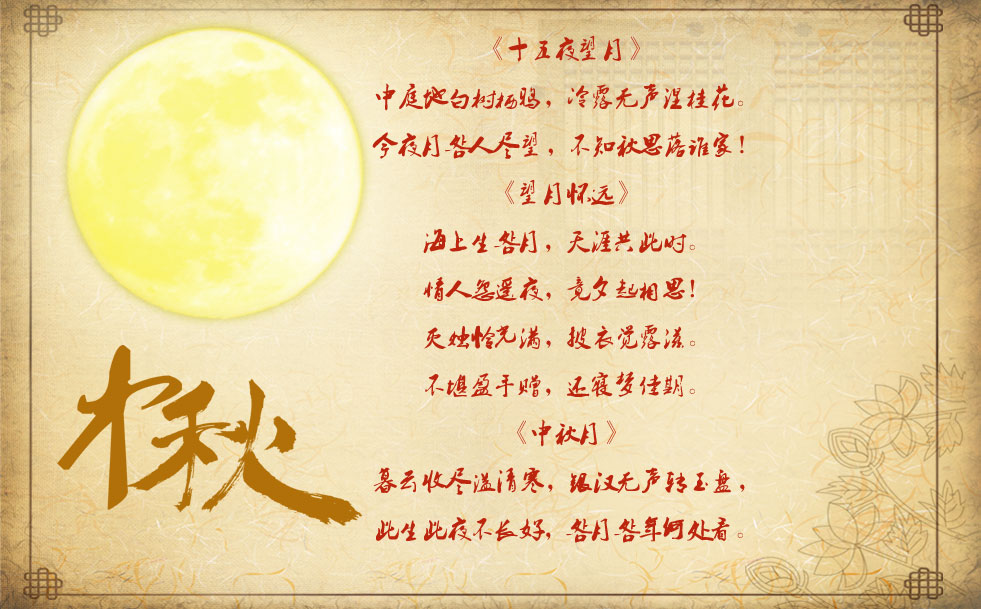 《十五夜望月》
中庭地白树栖鸦，冷露无声湿桂花。
今夜月明人尽望，不知秋思落谁家！
《望月怀远》
海上生明月，天涯共此时。
情人怨遥夜，竟夕起相思！
灭烛怜光满，披衣觉露滋。
不堪盈手赠，还寝梦佳期。
《中秋月》
暮云收尽溢清寒，银汉无声转玉盘，
此生此夜不长好，明月明年何处看。
中秋